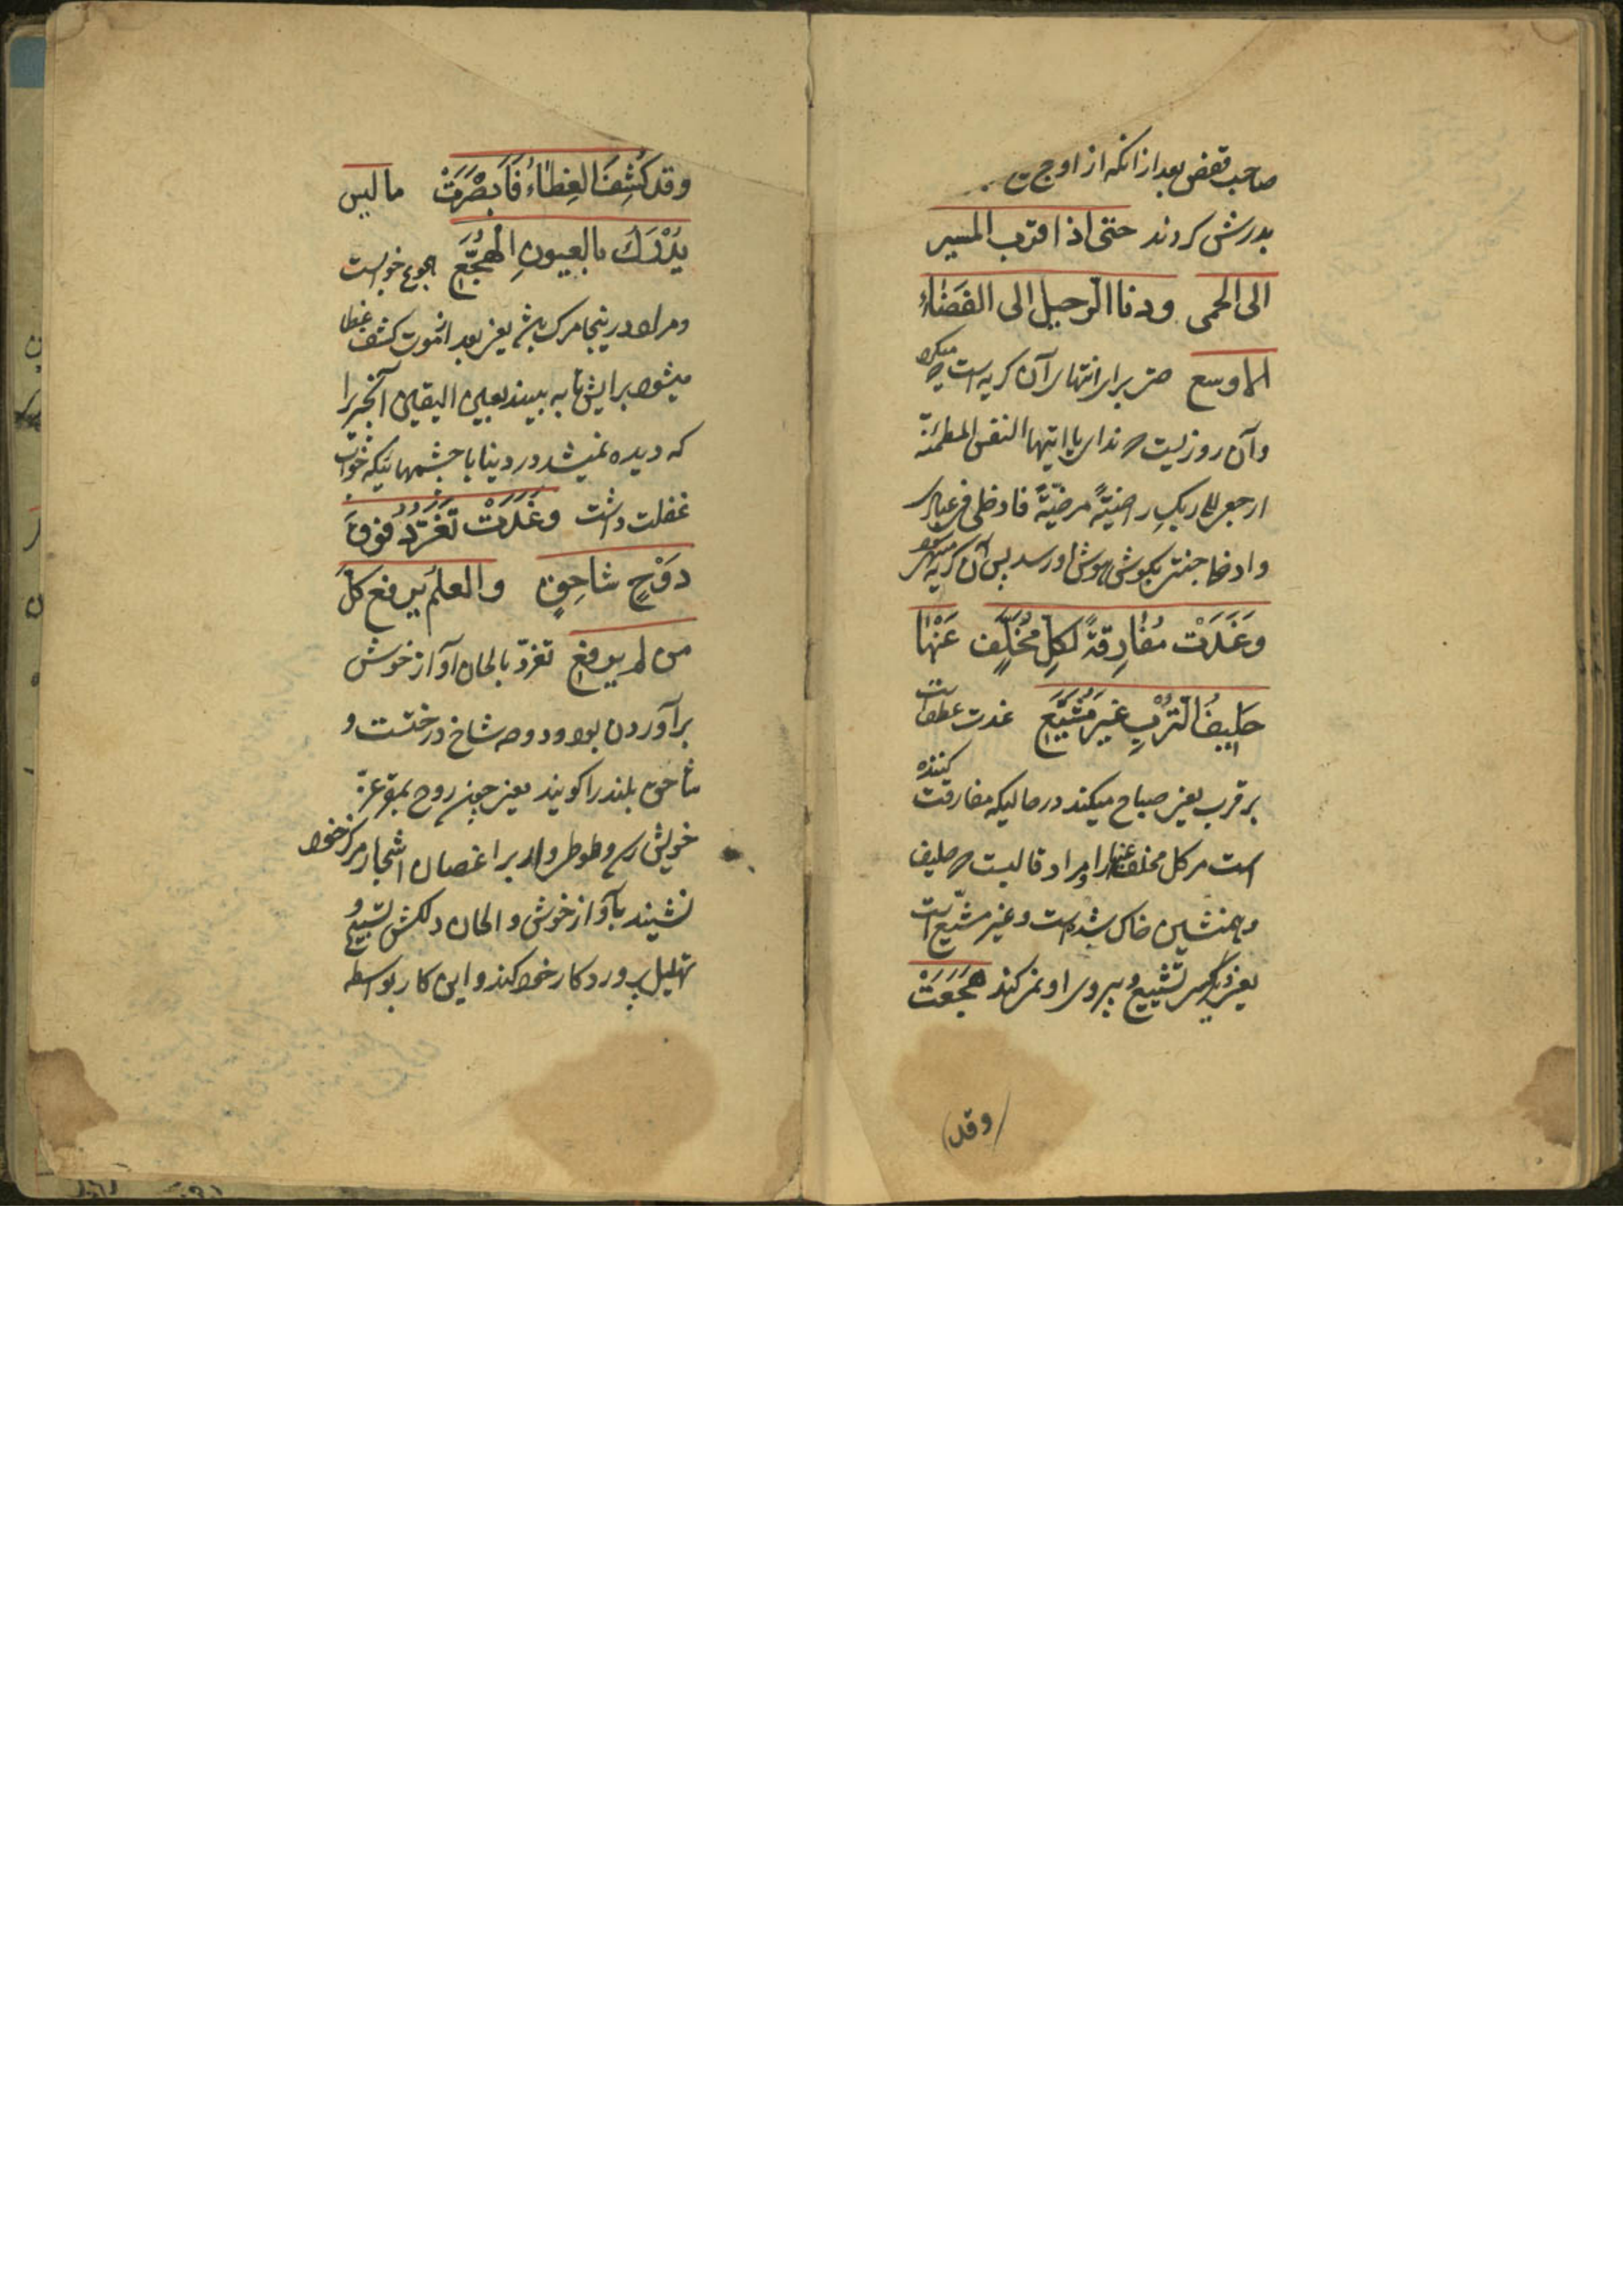 صاحب قفص بعد از انکه از اوج
بدرش کردند حتی اذا اقترب المسیر
الی الحمی ودنا الرحیل الی الفضاء
الاوسع حتی برای انتهای آن کریه است که میکرد
وآن روزیست که ندای یا ایتها النفس المطمئنة
ارجعی الی ربک راضیةً مرضیّةً فادخلی فی عبادی
وادخلی جنتی بکوش هوش او رسد پس آن کریه
وَغَدَتْ مُفارِقةً لکلِّ مُخَلَّفٍ عَنْها
حَلیفُ التُّرْبِ غیرُ مُشَیَّعِ غدت عطف است
بر قرب یعنی صباح میکند در حالیکه مفارقت کننده
است مر کل مخلف عنها را و مراد قالبست که حلیف
وهمنشین خاک شده است و غیر مشیّع است
یعنی دیگر کسی تشییع و پیروی او نمیکند هَجَعَتْ
وقد
وقد کُشِفَ الغِطاءُ فَاَبْصَرَتْ ما لیس
یُدْرَكُ بالعیونِ الهُجَّعِ هجوع خوابست
ومراد در اینجا مرک باشد یعنی بعد از موت کشف غطا
میشود برایش تا به بیند بعین الیقین آنچیز را
که دیده نمیشد در دنیا با چشمهائیکه خواب
غفلت داشت وغَدَتْ تُغَرِّدُ فوقَ
دَوْحٍ شاهِقٍ والعلمُ یرفع کلّ
من لم یرفع تغرّد بالحان آواز خوش
برآوردن بود و دوحه شاخ درختست و
شاهق بلند را کویند یعنی چون روح بموقع عزّ
خویش رسد وطوطی وار بر اغصان اشجار مرکز خود
نشیند بآواز خوش و الحان دلکش تسبیح و
تهلیل پروردکار خود کند و این کار بواسطه